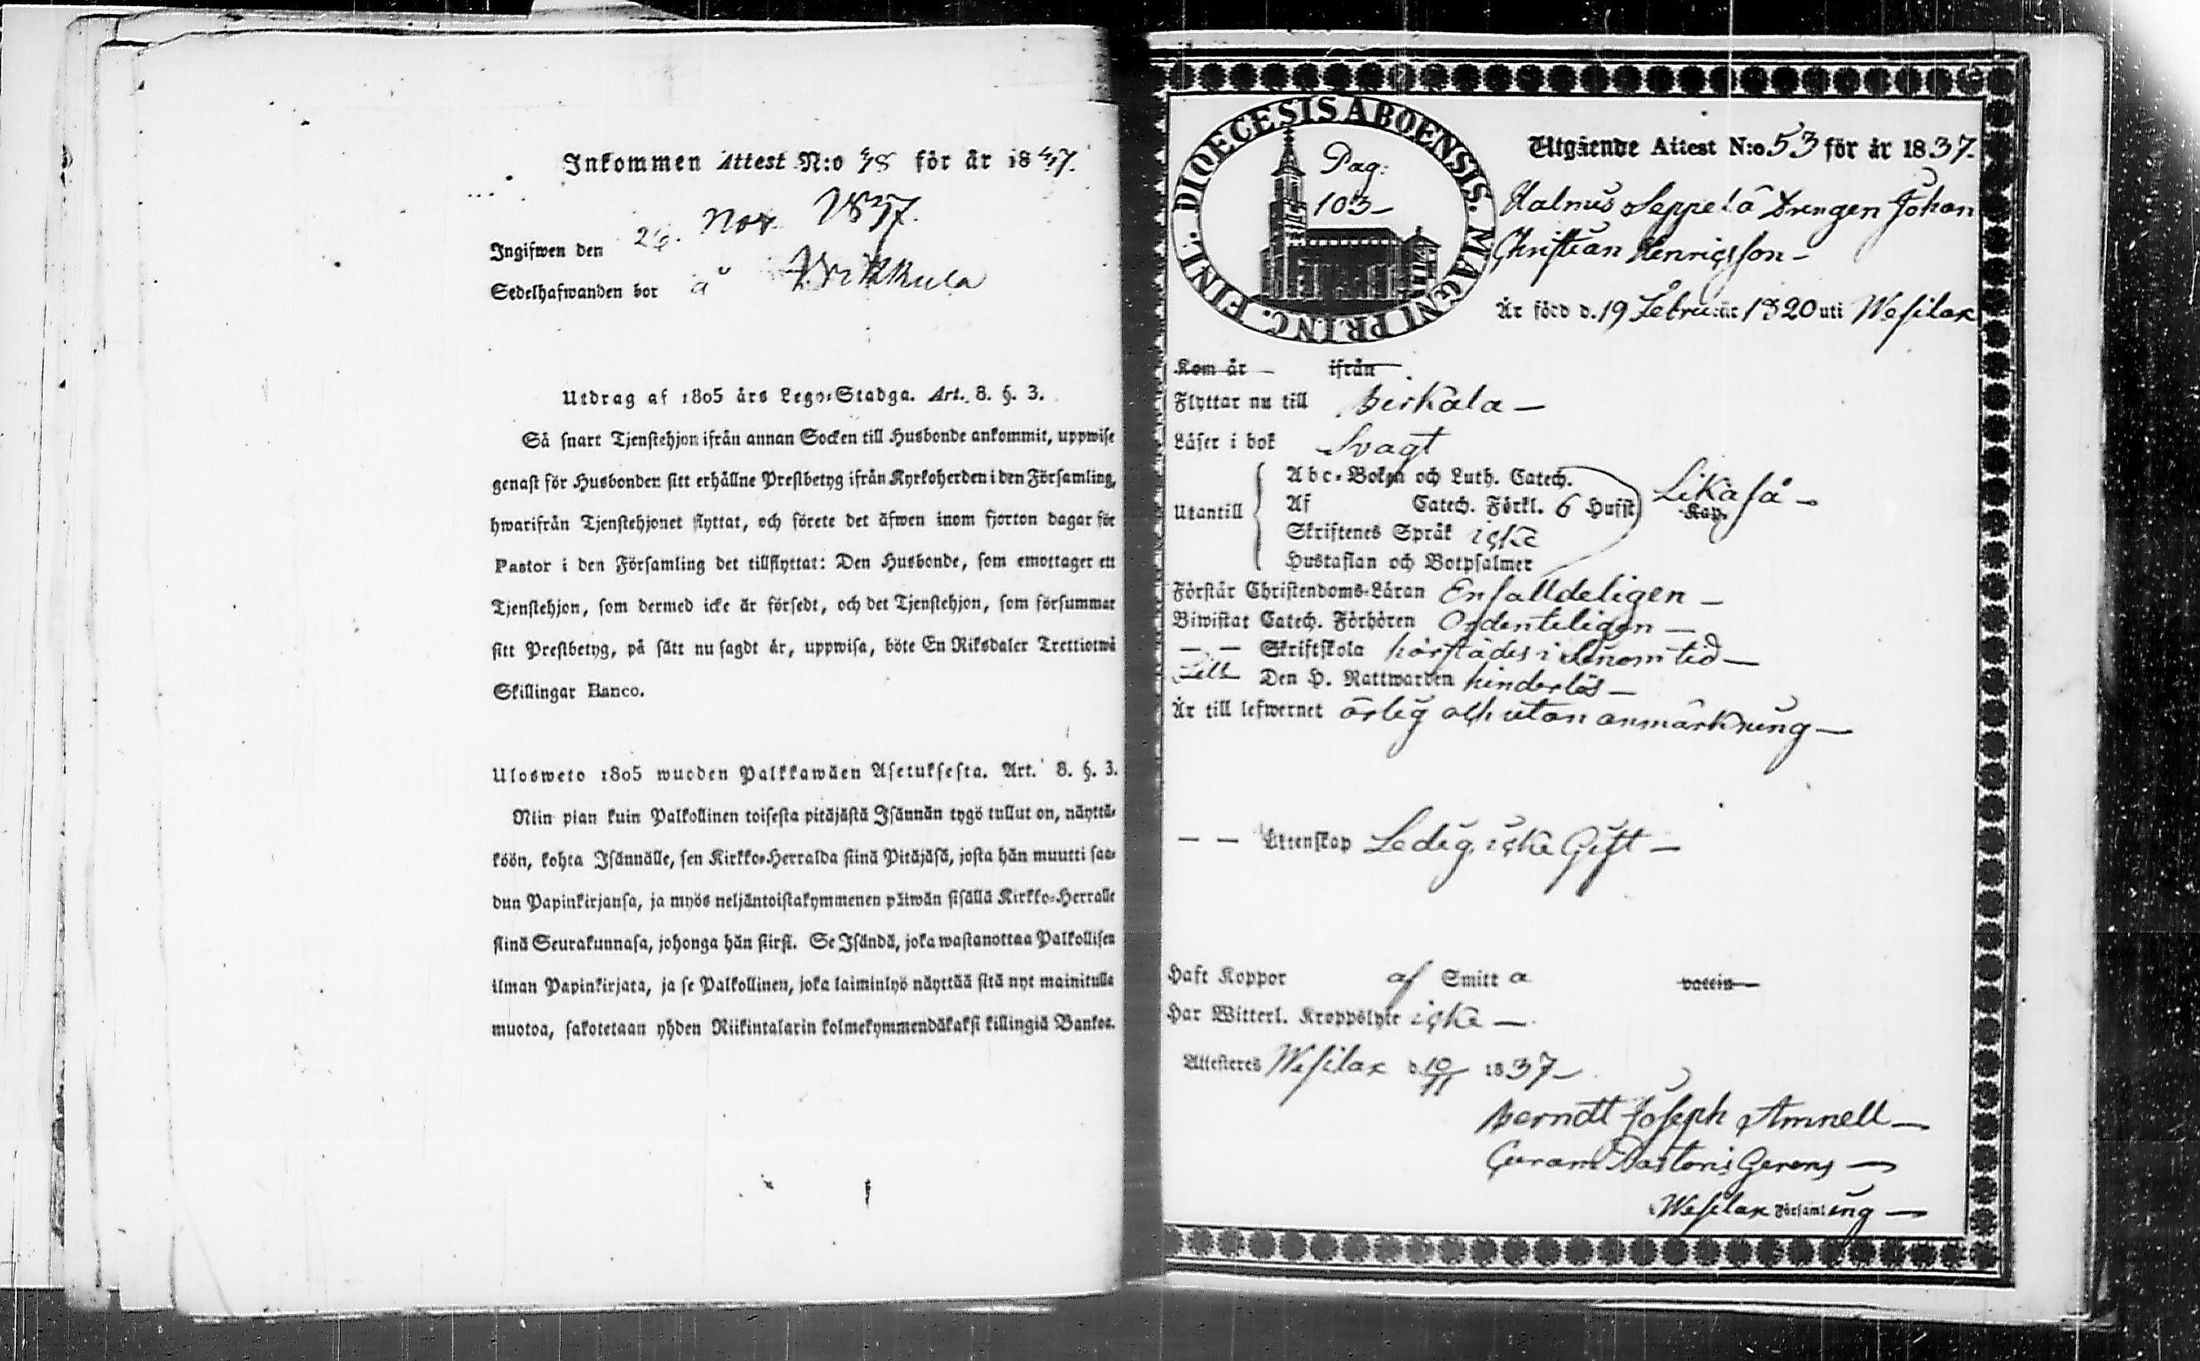 Inkommen Attest N:o 48 för år 1837.
Ingifwen den 26. Nov. 1837.
Sedelhafwanden bor å
Utdrag af 1805 års Lego-Stadga. Art. 8. §. 3.
Så snart Tjenstehjon ifrån annan Socken till Husbonde ankommit, uppwise
genast för Husbonden sitt erhållne Prestbetyg ifrån Kyrkoherden i den Församling,
hwarifrån Tjenstehjonet flyttat, och förete det äfwen inom fjorton dagar för
Pastor i den Församling det tillflyttat: Den Husbonde, som emottager ett
Tjenstehjon, som dermed icke är försedt, och det Tjenstehjon, som försummar
sitt Prestbetyg, på sätt nu sagdt är, uppwisa, böte En Riksdaler Trettiotwå
Skillingar Banco.
Ulosweto 1805 wuoden Palkkawäen Asetuksesta. Art. 8. §. 3.
Niin pian kuin Palkollinen toisesta pitäjästä Isännän tygö tullut on, näyttä-
köön, kohta Isännälle, sen Kirkko-Herralda siinä Pitäjäsä, josta hän muutti saa-
dun Papinkirjansa, ja myös neljäntoistakymmenen päiwän sisällä Kirkko-Herralle
siinä Seurakunnasa, johonga hän siirsi. Se Isändä, joka wastanottaa Palkollisen
ilman Papinkirjata, ja se Palkollinen, joka laiminlyö näyttää sitä nyt mainitulla
muotoa, sakotetaan yhden Riikintalarin kolmekymmendäkaksi killingiä Bankos.
DIOECESIS ABOENSIS. MAGNI PRINC. FINL.
Pag:
103-
Utgående Attest N:o 53 för år 1837.
Halmus Seppelä Drengen Johan
Christian Henricsson -
Är född d. 19 Februi: år 1820 uti Wesilax
Kom år - ifrån
Flyttar nu till Birkala -
Läser i bok Svagt
Utantill
Abc-Boken och Luth. Catech.
Af Catech. Förkl. 6 Hufst Kap. Likaså -
Skriftenes Språk icke
Hustaflan och Botpsalmer
Förstår Christendoms-Läran Enfalldeligen -
Biwistat Catech. Förhören Ordenteligen -
- - Skriftskola härstädes i sinom tid -
Till Den H. Nattwarden hinderlös -
Är till lefwernet ärlig och utan anmärkning -
- - Äktenskap Ledig, icke Gift -
Haft Koppor af Smitta vaccin
Har Witterl. Kroppslyte icke -
Attesteres Wesilax d. 10/11 1837 -
Berndt Joseph Amnell -
Curam Pastoris Gerens -
i Wesilax Församling -